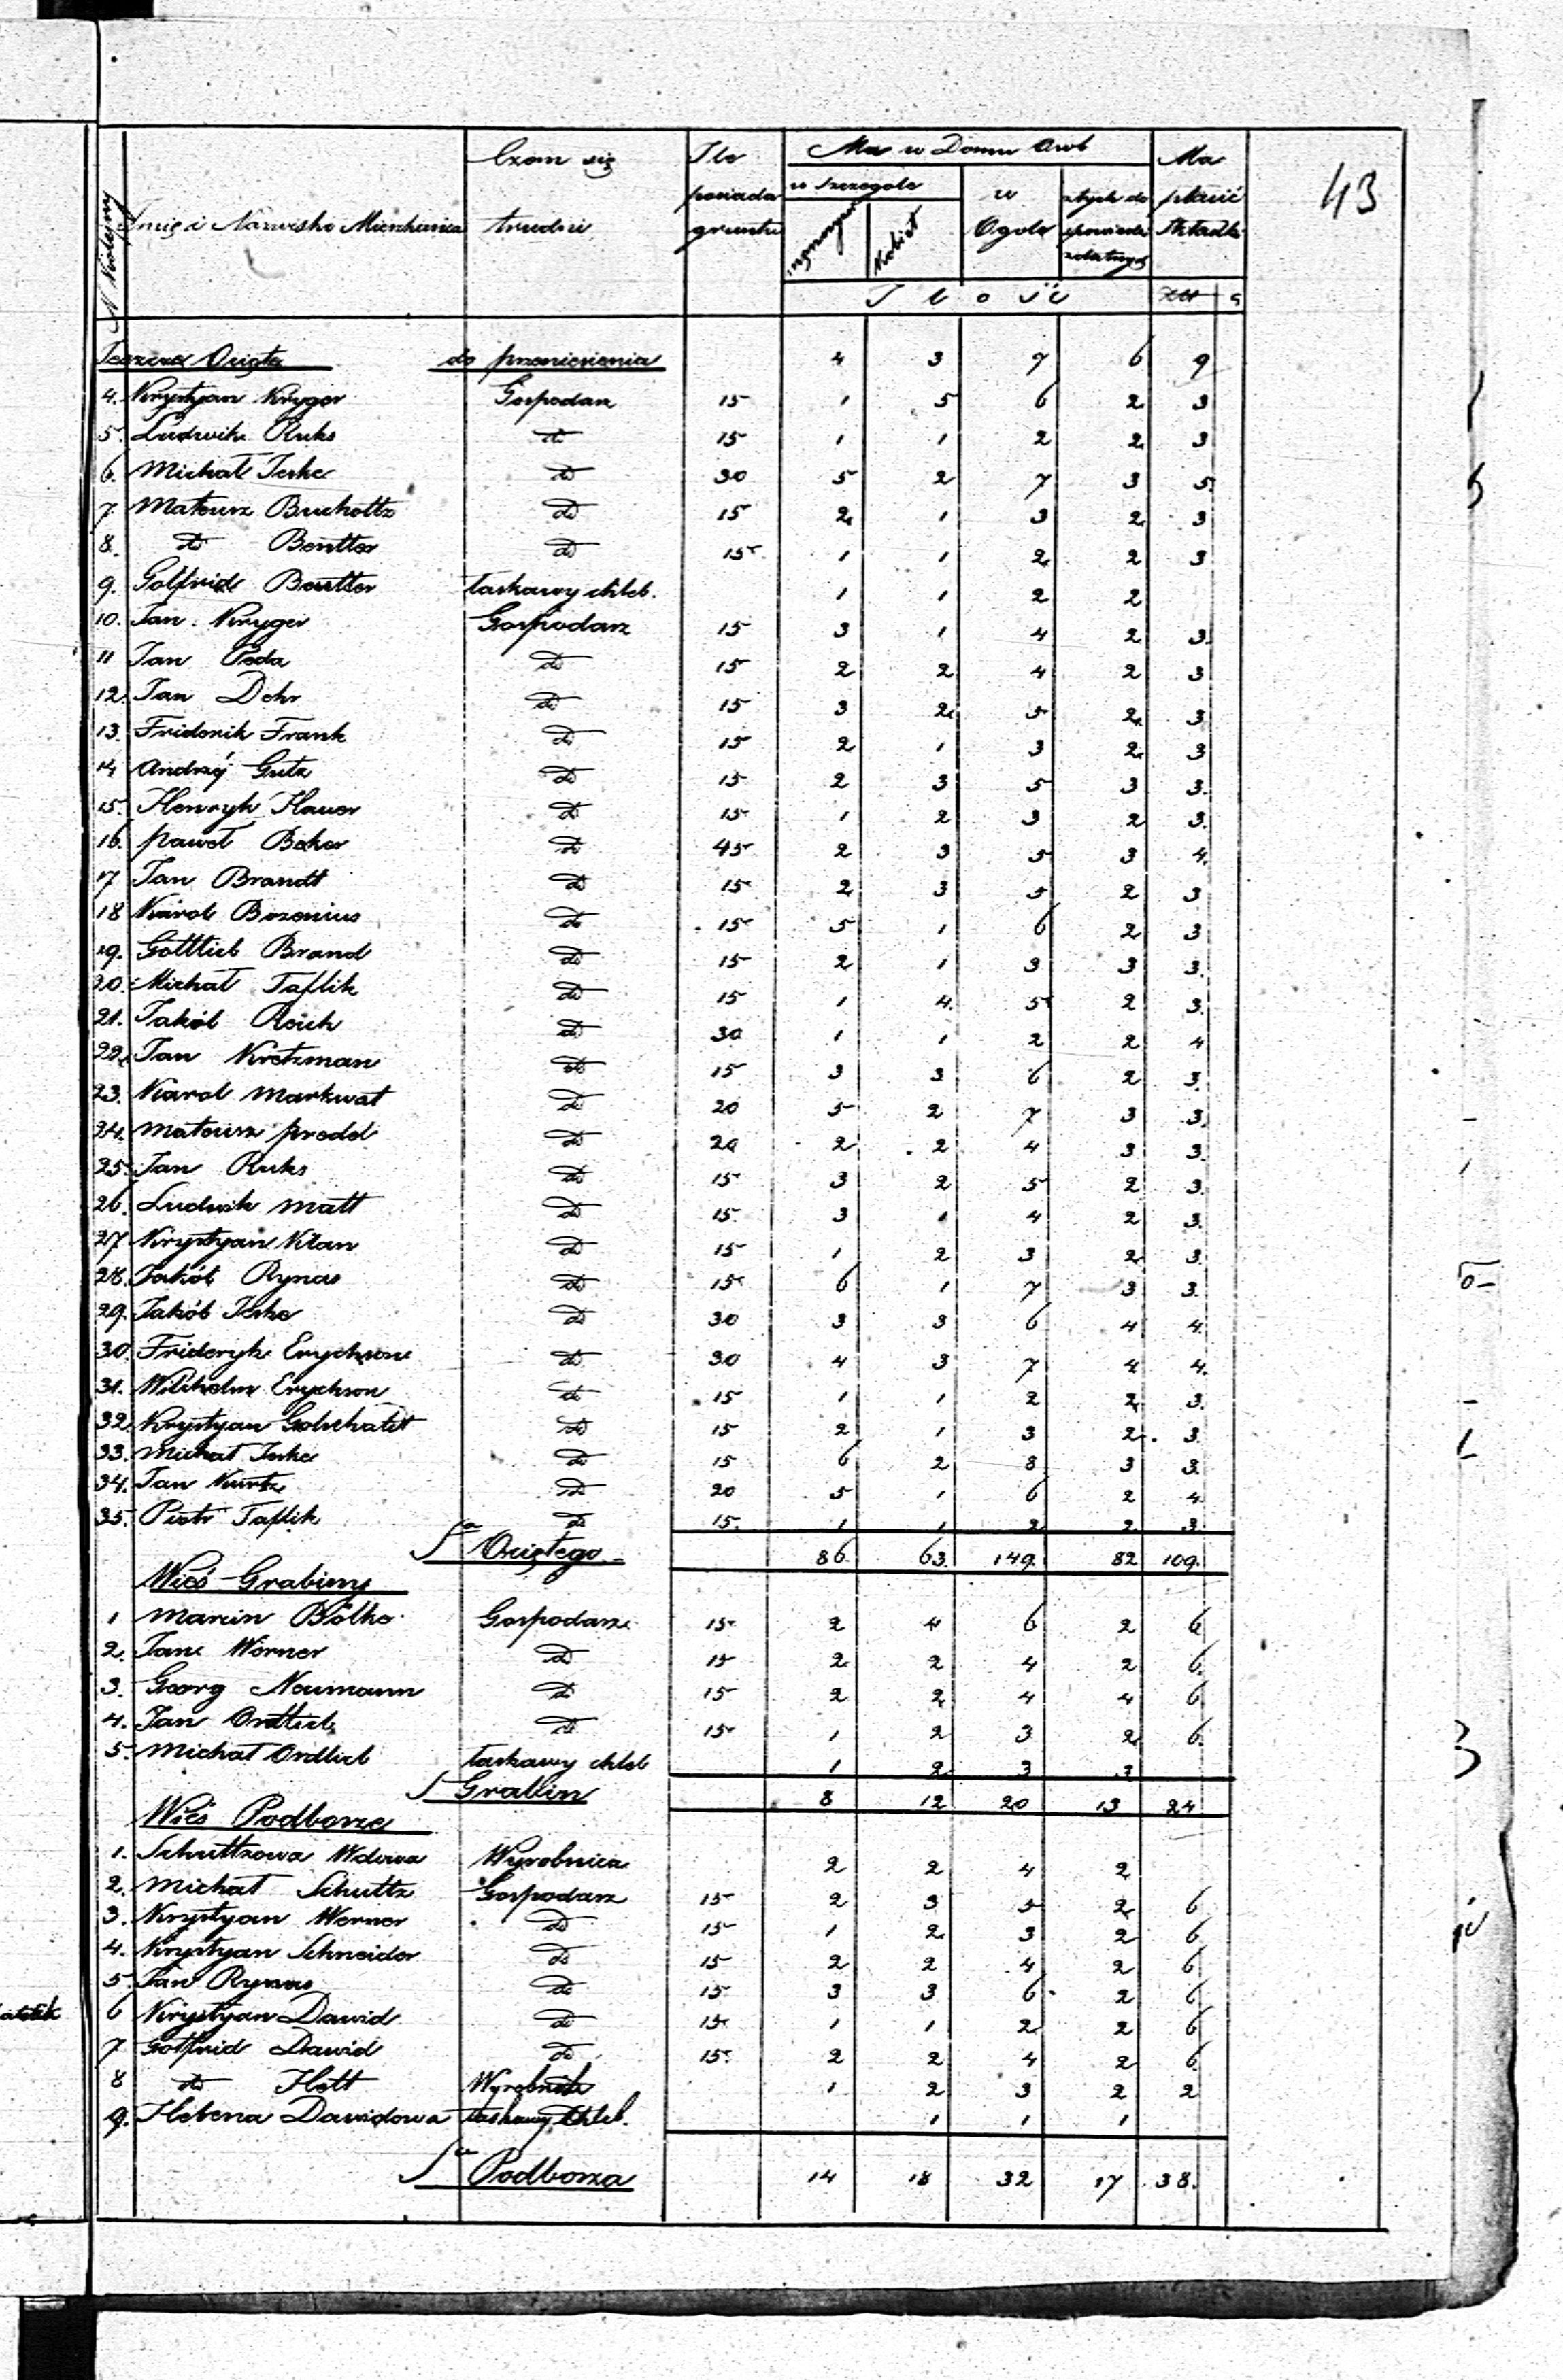 43
N Kolejny | Imię i Nazwisko Mieszkańca | Czem się trudni | Ile posiada gruntu | Ma w Domu Osób | Ma płacić Składki
w szczególe | w Ogole | z tych do spowiedzi zdatnych
mężczyzn | Kobiet
Ilość | Złt | g
Jeszcze Osięta do przeniesienia 4 3 7 6 9
4. Krystyan Kryger Gospodarz 15 1 5 6 2 3
5. Ludwik Ruks do 15 1 1 2 2 3
6. Michał Jeske do 30 5 2 7 3 5
7. Mateusz Bucholtz do 15 2 1 3 2 3
8. do Beutler do 15 1 1 2 2 3
9. Gotfrid Beutler łaskawy chleb. 1 1 2 2
10. Jan Kryger Gospodarz 15 3 1 4 2 3.
11 Jan Peda do 15 2 2 4 2 3
12. Jan Dehr do 15 3 2 5 2 3
13. Friderik Frank do 15 2 1 3 2 3
14 Andrzej Gutz do 15 2 3 5 3 3.
15. Henryk Hauer do 15 1 2 3 2 3.
16. Paweł Beker do 45 2 3 5 3 4.
17 Jan Brandt do 15 2 3 5 2 3
18 Karol Bozenius do 15 5 1 6 2 3
19. Gottlieb Brand do 15 2 1 3 3 3.
20. Michał Taflik do 15 1 4. 5 2 3.
21. Jakób Reich do 30 1 1 2 2 4
22. Jan Kretzman do 15 3 3 6 2 3.
23. Karol Markwat do 20 5 2 7 3 3.
24. Mateusz Predel do 20 2 2 4 3 3.
25. Jan Ruks do 15 3 2 5 2 3.
26. Ludwik Matt do 15. 3 1 4 2 3.
27 Krystyan Klan do 15 1 2 3 2 3.
28. Jakób Rynas do 15 6 1 7 3 3.
29. Jakób Jeske do 30 3 3 6 4 4.
30. Frideryk Erychson do 30 4 3 7 4 4.
31. Wilhelm Erychson do 15 1 1 2 2 3.
32. Krystyan Golschalt do 15 2 1 3 2 3.
33. Michał Jeske do 15 6 2 8 3 3.
34. Jan Kurtz do 20 5 1 6 2 4
35. Piotr Taflik do 15. 1 1 2 2 3.
Sa Osiętego 86. 63. 149. 82 109.
Wieś Grabiny
1 Marcin Bölke Gospodarz 15 2 4 6 2 6
2. Jan Wörner do 15 2 2 4 2 6.
3. Georg Neumann do 15 2 2 4 4 6
4. Jan Ordlieb do 15 1 2 3 2 6.
5. Michał Ordlieb łaskawy chleb 1 2 3 3
S Grabin 8 12 20 13 24
Wieś Podborze
1. Schultzowa Wdowa Wyrobnica 2 2 4 2
2. Michał Schultz Gospodarz 15 2 3 5 2 6
3. Krystyan Werner do 15 1 2 3 2 6
4. Krystyan Schneider do 15 2 2 4 2 6
5. Jan Rynas do 15 3 3 6 2 6
6 Krystyan Dawid do 15 1 1 2 2 6
7 Gotfrid Dawid do 15. 2 2 4 2 6.
8 do Hott Wyrobnik 1 2 3 2 2
9. Helena Dawidowa łaskawy Chleb. 1 1 1
Sa Podborza 14 18 32 17 38.